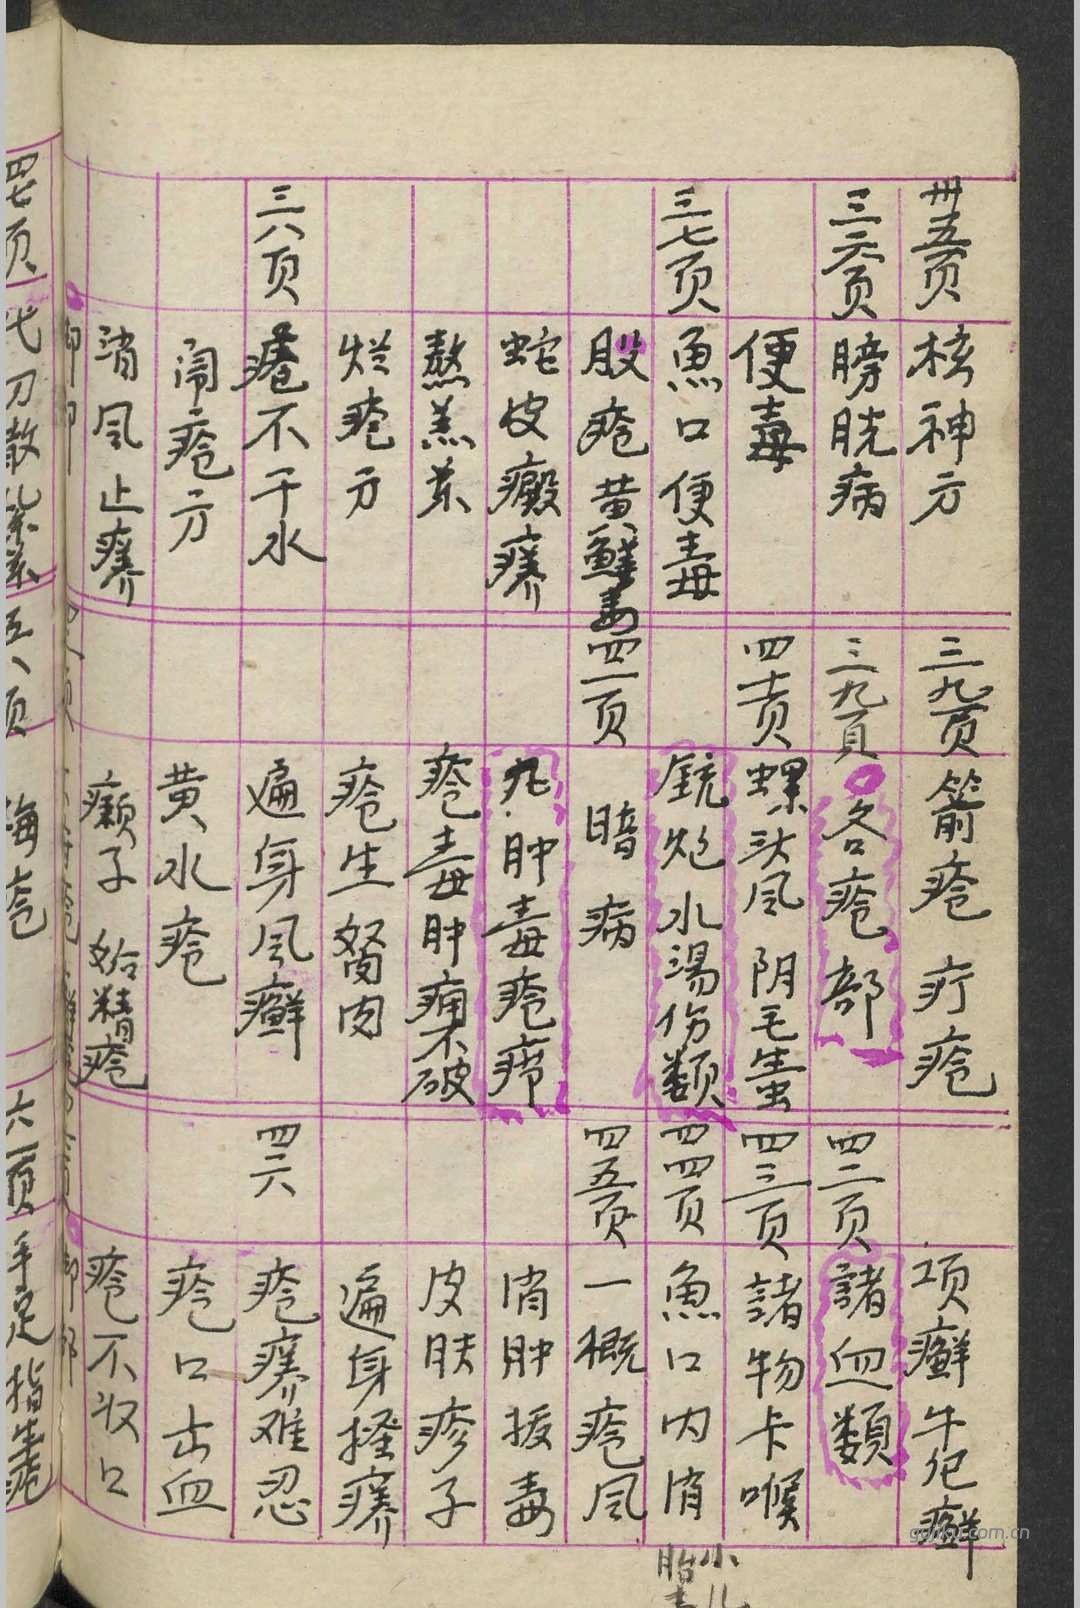 卅五页
核神方
三六页
膀胱病
便毒
三七页
魚口便毒
股疮黄鲜
蛇皮癜癢
熬羔
烂疮方
三八页
疮不干水
闹疮方
消风止癢
三九页
箭疮 疔疮
三九頁
各疮部
四十页
螺头风 阴毛生虫
銃炮水湯伤類
四一页
暗病
九.肿毒疮疖
疮毒肿痛不破
疮生胬肉
遍身风癣
黄水疮
癞子 妒精疮
项癣牛皮癣
四二页
諸血類
四三页
諸物卡喉
四四页
魚口内消
四五页
一概疮风
消肿拔毒
皮肤疹子
遍身搔癢
四六
疮癢难忍
疮口出血
疮不收口
小儿
胎毒
四七页
代刀散
五八页
六一页
手足指生疮
guwu.com.cn